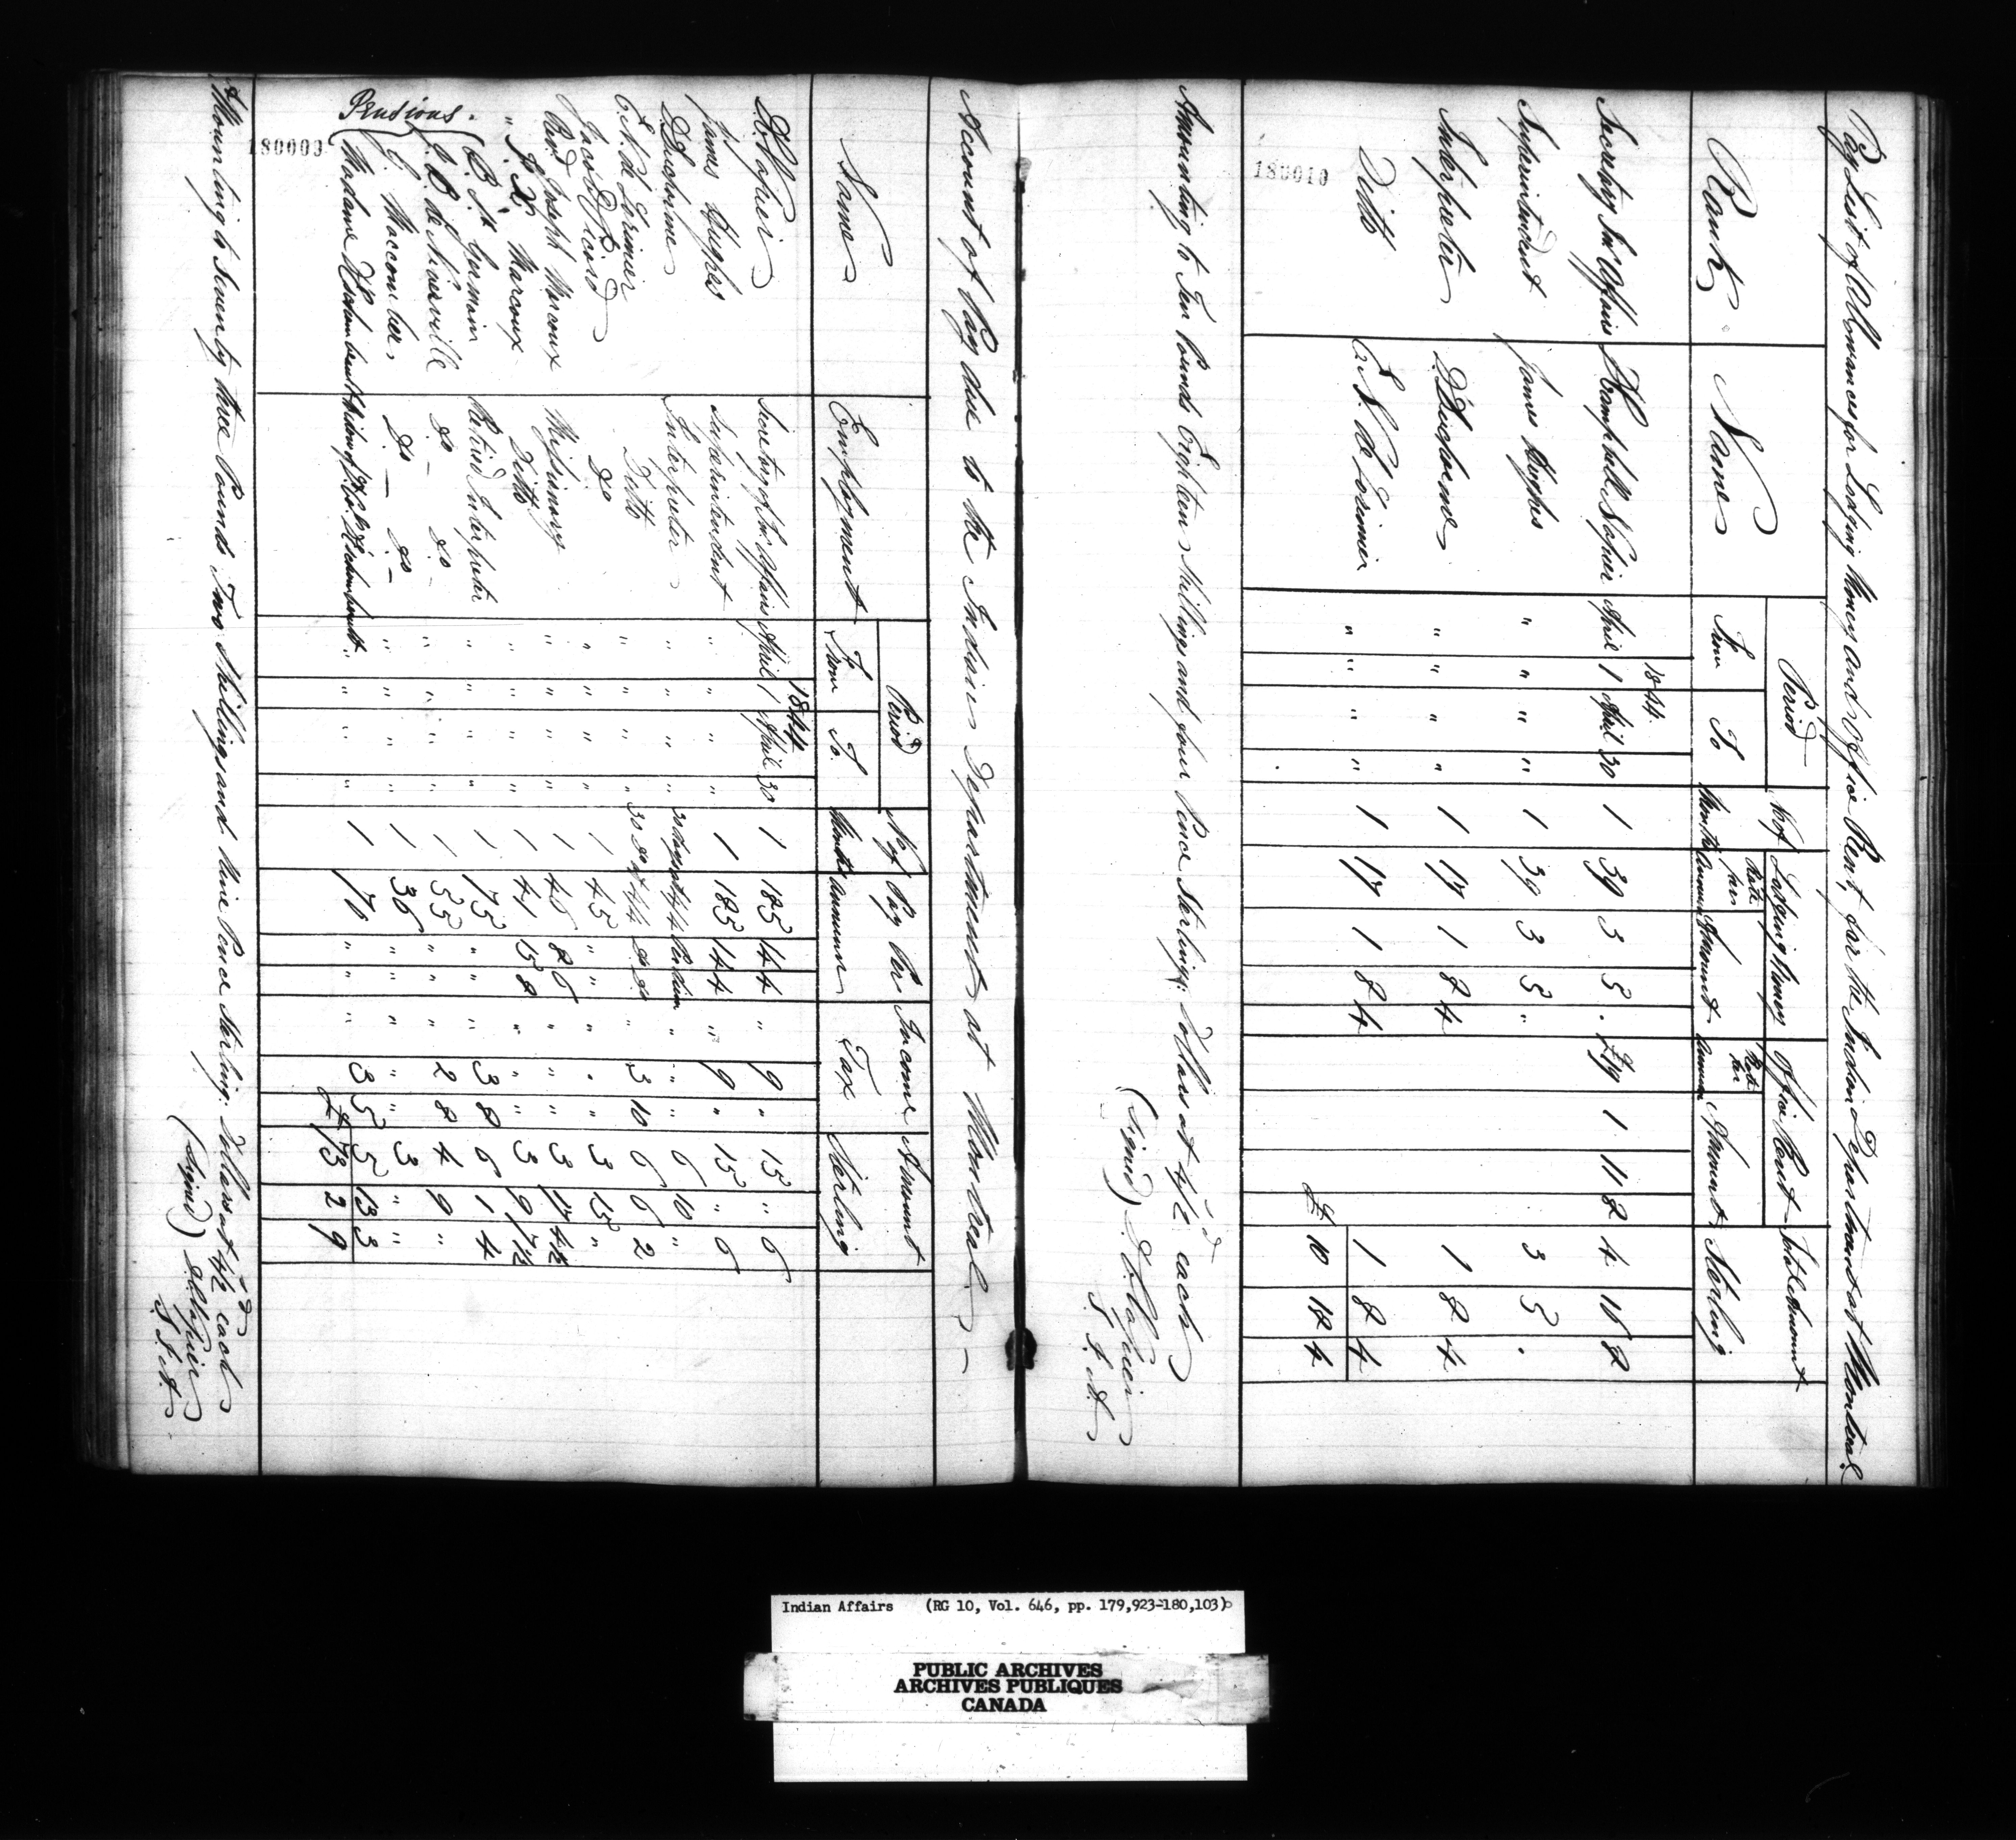 Pay List of Allowances for Lodging Money and Office Rent, for the Indian Department at Montreal.
Rank Name Period No. of Months Lodging Money Office Rent Total Amount Sterling
From To Rate per Annum Amount Rate per Annum Amount
1844
Secretary In. Affairs Napier April 1 April 30 1 39 3 5 . £19 1 11 8 4 16 8
Superintendent James Hughes " " " " 1 39 3 5 " 3 5 .
Interpreter D. Ducharme " " " " 1 17 1 8 4 1 8 4
Ditto C. N. de Lorimier " " " " 1 17 1 8 4 1 8 4
£ 10 18 4
180010
Amounting to Ten Pounds Eighteen Shillings and four Pence Sterling. Dollars at 4/2d each
(Signed) D. C. Napier
S. I. A.
Account of Pay due to the Indian Department at Montreal.
Name Employment Period No. of Months Pay Per Annum Income Tax Amount Sterling
From To
1844
D. C. Napier Secretary of In. Affairs April 1 April 30 1 185 14 4 " 9 " 15 " 6
James Hughes Superintendent " " " " 1 185 14 4 " 9 " 15 " 6
D. Ducharme Interpreter " " " " 30 days at 4/4 Per diem " " " 6 10 "
C. N. de Lorimier Ditto " " " " 30 do at 4/4 do do " 3 10 6 6 2
Jacob Picard do " " " " 1 45 " " " " " 3 15 "
Revd. Joseph Marcoux Missionary " " " " 1 46 8 6 " " " 3 17 4½
" F. X. Marcoux Ditto " " " " 1 41 15 8 " " " 3 9 7½
Pensions.
B. St. Germain Retired Interpreter " " " " 1 75 " " " 3 8 6 1 4
J. B. de Niverville do - do - " " " " 1 55 " " " 2 8 4 9 "
C. Maccomber, do - do - " " " " 1 36 " " " " " 3 " "
Madame Herchambault Widow of Herchambault. " " " " 1 70 " " " 3 5 5 13 3
£ 73 2 9
180009
Amounting to Seventy three Pounds Two Shillings and Nine Pence Sterling. Dollars at 4/2d each
(Signed) D. C. Napier
S. I. A.
Indian Affairs (RG 10, Vol. 646, pp. 179,923-180,103)
PUBLIC ARCHIVES
ARCHIVES PUBLIQUES
CANADA